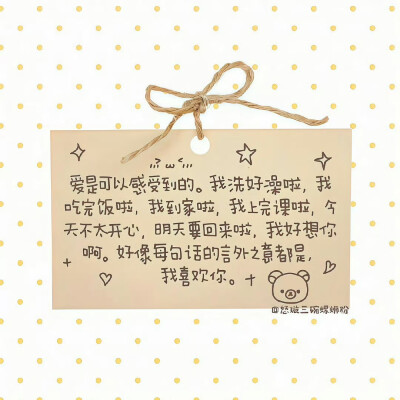 爱是可以感受到的。我洗好澡啦，我
吃完饭啦，我到家啦，我上完课啦，今
天不太开心，明天要回来啦，我好想你
啊。好像每句话的言外之意都是，
我喜欢你。